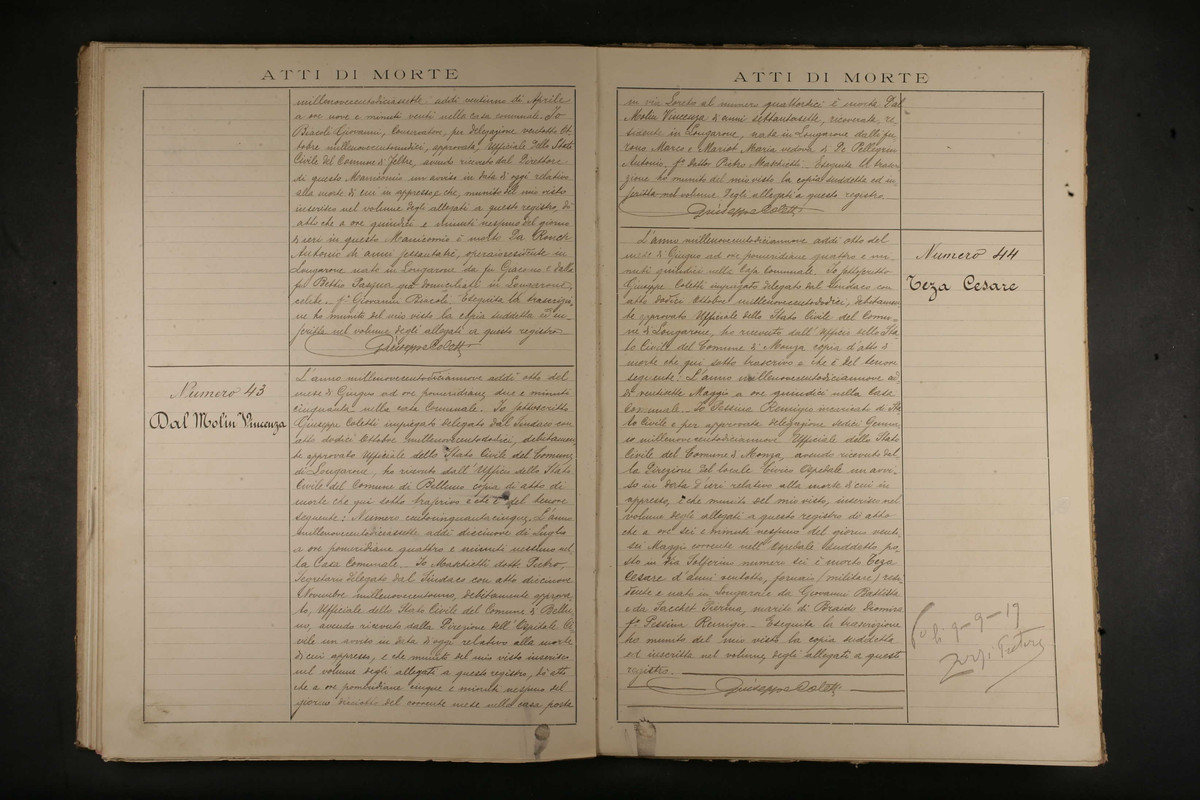 ATTI DI MORTE
millenovecentodiciassette addì ventuno di Aprile
a ore nove e minuti venti nella casa comunale. Io
Biacoli Giovanni, per delegazione ventotto Ot
tobre millenovecentoundici, approvata, Ufficiale dello Stato
Civile del Comune di Feltre, avendo ricevuto dal Direttore
di questo Manicomio un avviso in data d'oggi relativo
alla morte di cui in appresso e che, munito del mio visto
inserisco nel volume degli allegati a questo registro, dò
atto che a ore quindici e minuti nessuno del giorno
di ieri in questo Manicomio è morto De
Antonio di anni sessantatre, operaio residente in
Longarone nato in Longarone da fu Giacomo e dalla
fu Bettio Pasqua già domiciliati in Longarone,
celibe. f° Giovanni Biacoli. Eseguita la trascrizio
ne ho munito del mio visto la copia suddetta ed in
serita nel volume degli allegati a questo registro.
Giuseppe Coletti
Numero 43
Dal Molin Vincenza
L'anno millenovecentodiciannove addì otto del
mese di Giugno ad ore pomeridiane due e minuti
cinquanta nella casa Comunale. Io sottoscritto
Giuseppe Coletti impiegato delegato dal Sindaco con
atto dodici Ottobre millenovecentododici, debitamen
te approvato Ufficiale dello Stato Civile del Comune
di Longarone, ho ricevuto dall'Ufficio dello Stato
Civile del Comune di Belluno copia di atto di
morte che qui sotto trascrivo e che è del tenore
seguente: Numero centocinquantacinque. L'anno
millenovecentodiciassette addì diecinove di Luglio
a ore pomeridiane quattro e minuti nessuno nel
la Casa Comunale. Io Maschietti dott Pietro,
Segretario delegato dal Sindaco con atto diecinove
Novembre millenovecentouno, debitamente approva
to, Ufficiale dello Stato Civile del Comune di Bellu
no, avendo ricevuto dalla Direzione dell'Ospitale Ci
vile un avviso in data d'oggi relativo alla morte
di cui appresso, e che munito del mio visto inserisco
nel volume degli allegati a questo registro, dò atto
che a ore pomeridiane cinque e minuti nessuno del
giorno diciotto del corrente mese nella casa posta
ATTI DI MORTE
in via Loreto al numero quattordici è morta Dal
Molin Vincenza d'anni settantasette, ricoverata, re
sidente in Longarone, nata in Longarone dalli fu
rono Marco e Mariot Maria vedova di De Pellegrin
Antonio. f° dottor Pietro Maschietti. Eseguita la trascri
zione ho munito del mio visto la copia suddetta ed in
scritta nel volume degli allegati a questo registro.
Giuseppe Coletti
L'anno millenovecentodiciannove addì otto del
mese di Giugno ad ore pomeridiane quattro e mi
nuti quindici nella Casa Comunale. Io sottoscritto
Giuseppe Coletti impiegato delegato dal Sindaco con
atto dodici Ottobre millenovecentododici, debitamen
te approvato Ufficiale dello Stato Civile del Comu
ne di Longarone, ho ricevuto dall'Ufficio dello Sta
to Civile del Comune di Monza copia d'atto di
morte che qui sotto trascrivo e che è del tenore
seguente: L'anno millenovecentodiciannove ad
dì ventisette Maggio a ore quindici nella Casa
Comunale. Io Pessina Remigio incaricato di Sta
to Civile e per approvata delegazione sedici Genna
io millenovecentodiciannove Ufficiale dello Stato
Civile del Comune di Monza, avendo ricevuto dal
la Direzione del locale Civico Ospitale un avvi
so in data d'ieri relativo alla morte di cui in
appresso, e che munito del mio visto, inserisco nel
volume degli allegati a questo registro dò atto
che a ore sei e minuti nessuno del giorno venti
sei Maggio corrente nell'Ospitale suddetto po
sto in Via Solferino numero sei è morto Teza
Cesare d'anni ventotto, fornaio (militare) resi
dente e nato in Longarone da Giovanni Battista
e da Sacchet Pierina, marito di Braido Diomira
f° Pessina Remigio. Eseguita la trascrizione
ho munito del mio visto la copia suddetta
ed inscritta nel volume degli allegati a questo
registro.
Giuseppe Coletti
Numero 44
Teza Cesare
9-9-19